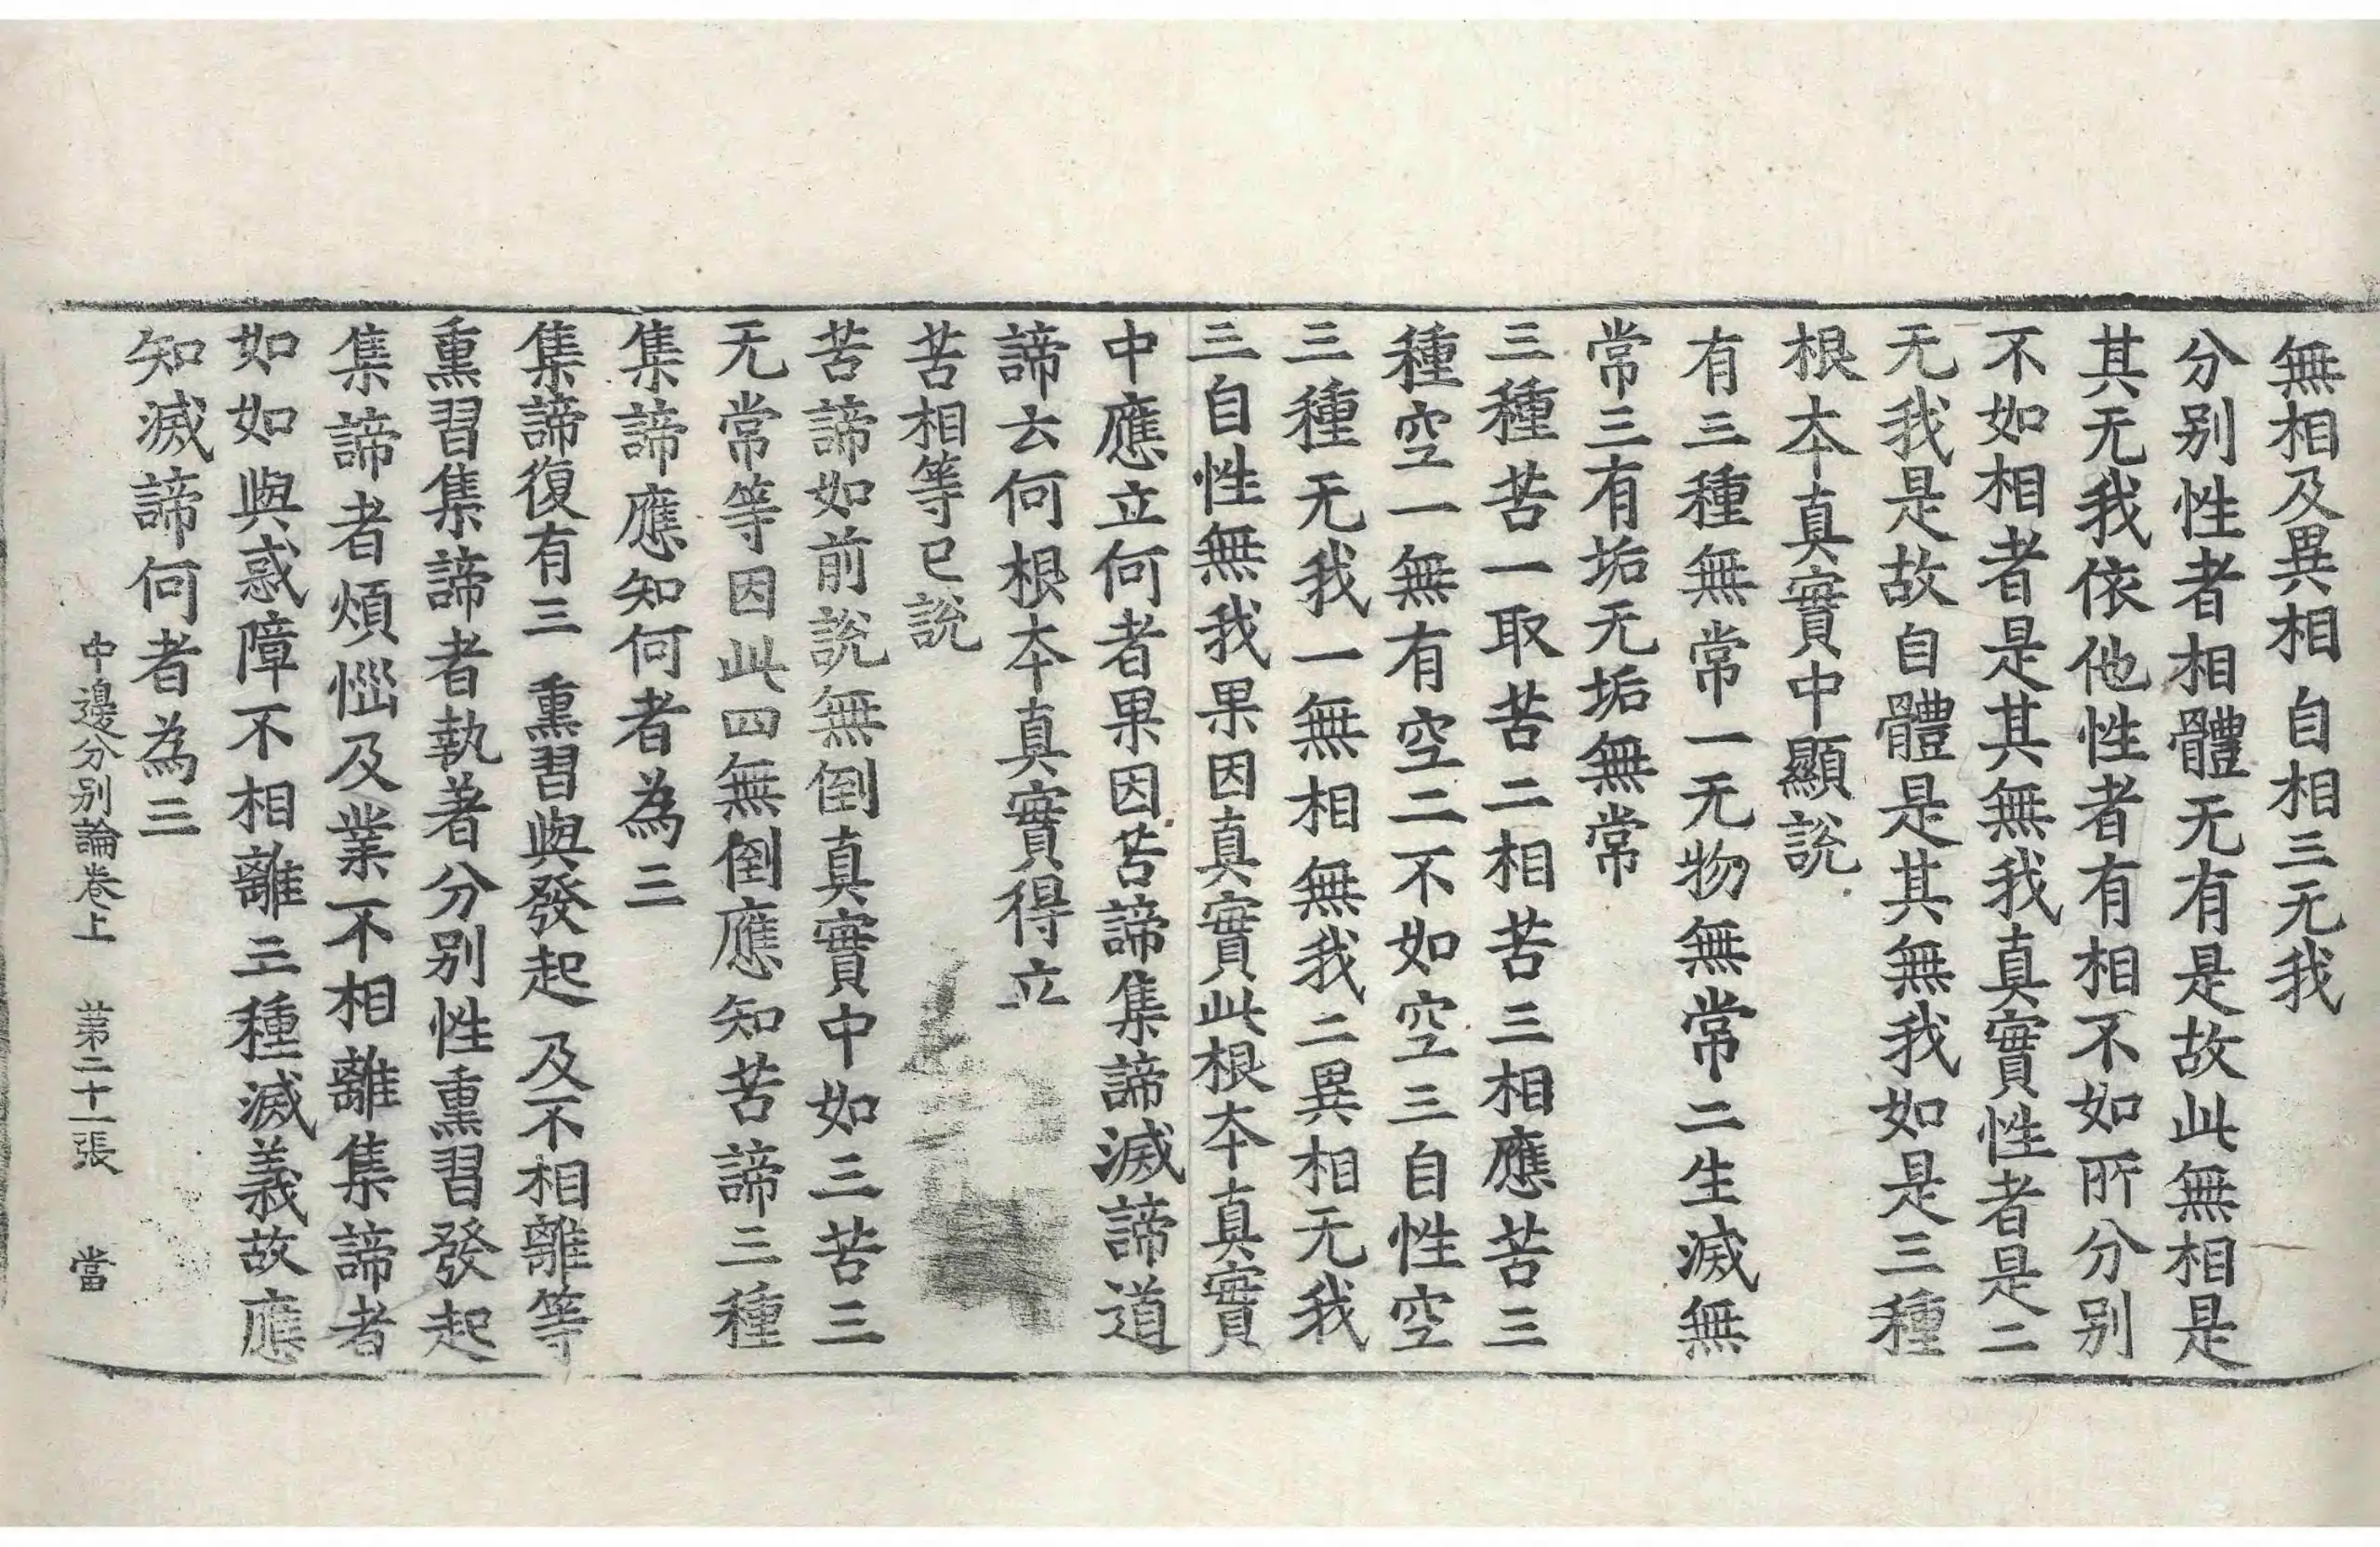 無相及異相 自相三无我
分别性者相體无有是故此無相是
其无我依他性者有相不如所分别
不如相者是其無我真實性者是二
无我是故自體是其無我如是三種
根本真實中顯説
有三種無常一无物無常二生滅無
常三有垢无垢無常
三種苦一取苦二相苦三相應苦三
種空一無有空二不如空三自性空
三種无我一無相無我二異相无我
三自性無我果因真實此根本真實
中應立何者果因苦諦集諦滅諦道
諦云何根本真實得立
苦相等已説
苦諦如前說無倒真實中如三苦三
无常等因此四無倒應知苦諦三種
集諦應知何者為三
集諦復有三 熏習與發起 及不相離等
熏習集諦者執著分别性熏習發起
集諦者煩惱及業不相離集諦者
如如與惑障不相離三種滅義故應
知滅諦何者為三
中邊分别論卷上 苐二十一張 當